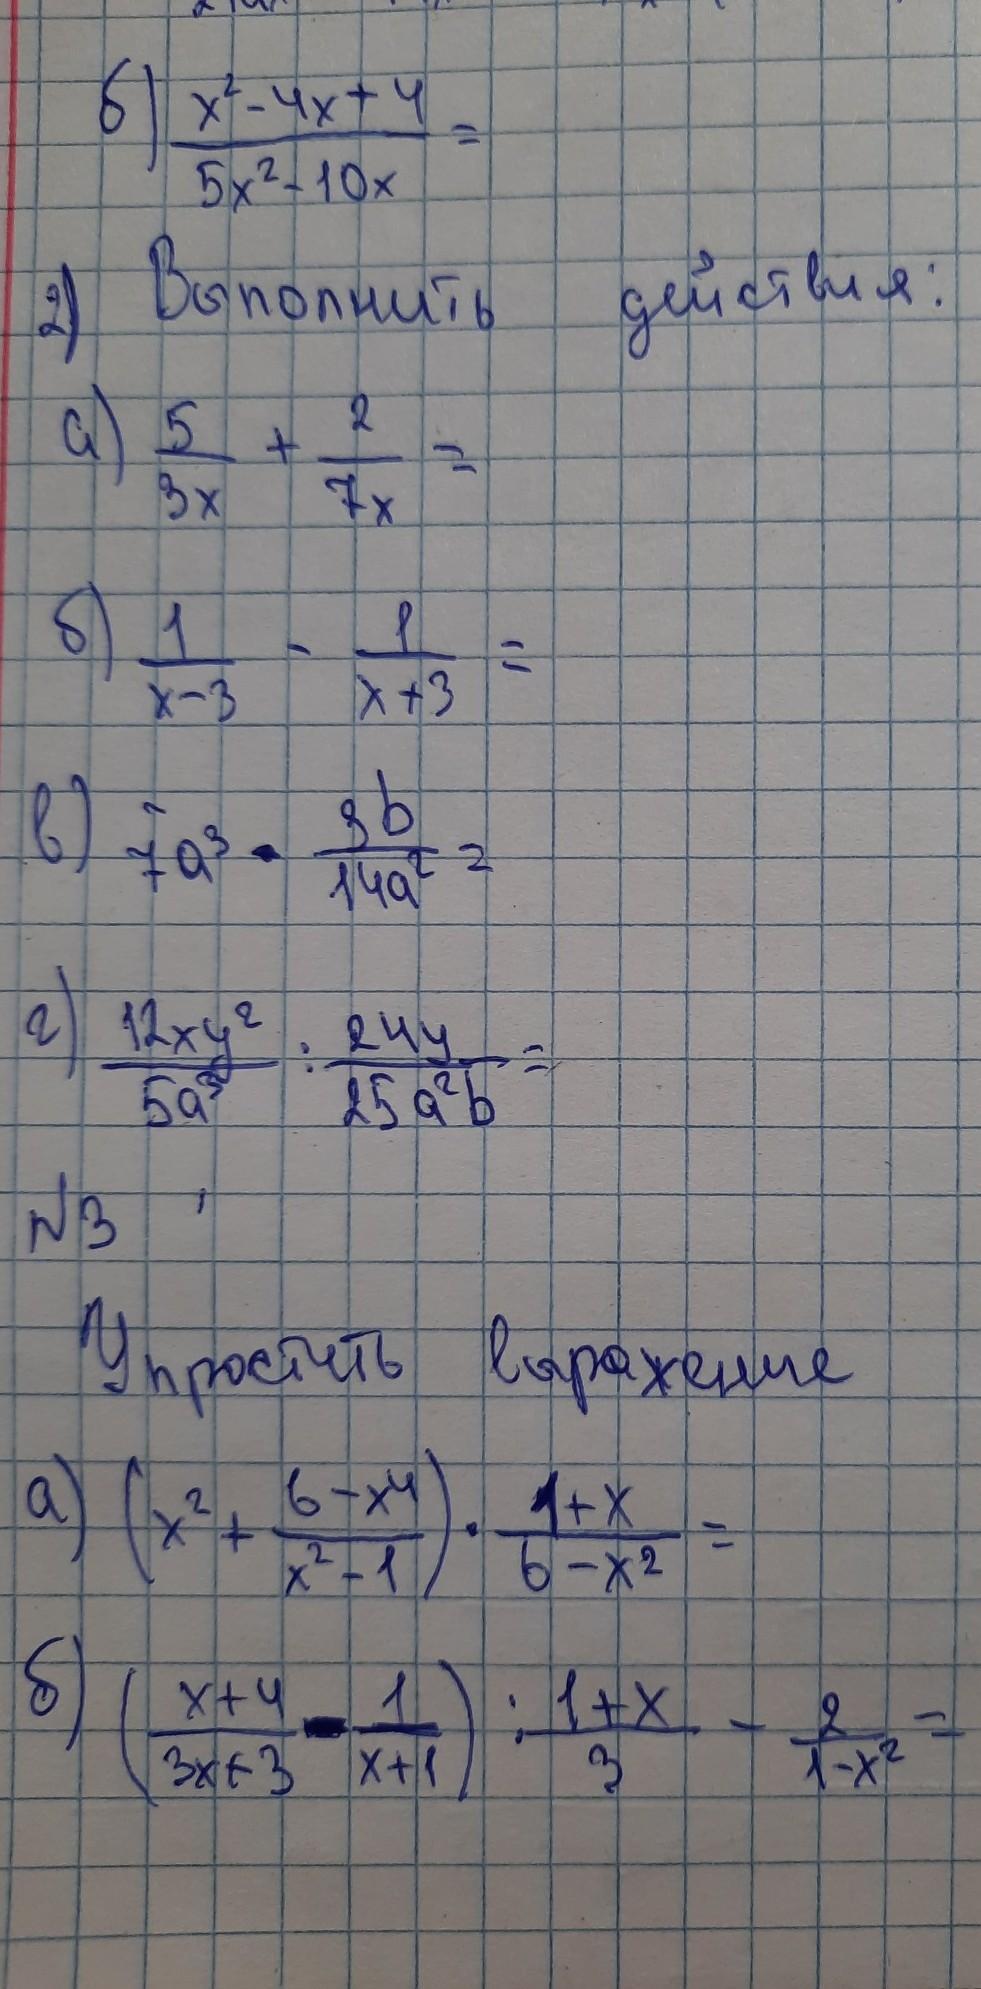 б) (x² - 4x + 4)/(5x² - 10x) =
2) Выполнить действия:
а) 5/(3x) + 2/(7x) =
б) 1/(x-3) - 1/(x+3) =
в) 7a³ · 3b/(14a²) =
г) 12xy²/(5a³) : 24y/(25a²b) =
N3
Упростить выражение
а) (x² + (6-x4)/(x²-1)) · (1+x)/(6-x²) =
б) ((x+4)/(3x+3) - 1/(x+1)) : (1+x)/3 - 2/(1-x²) =